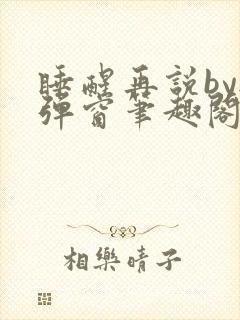 睡醒再說by
弹窗笔趣阁
相樂晴子